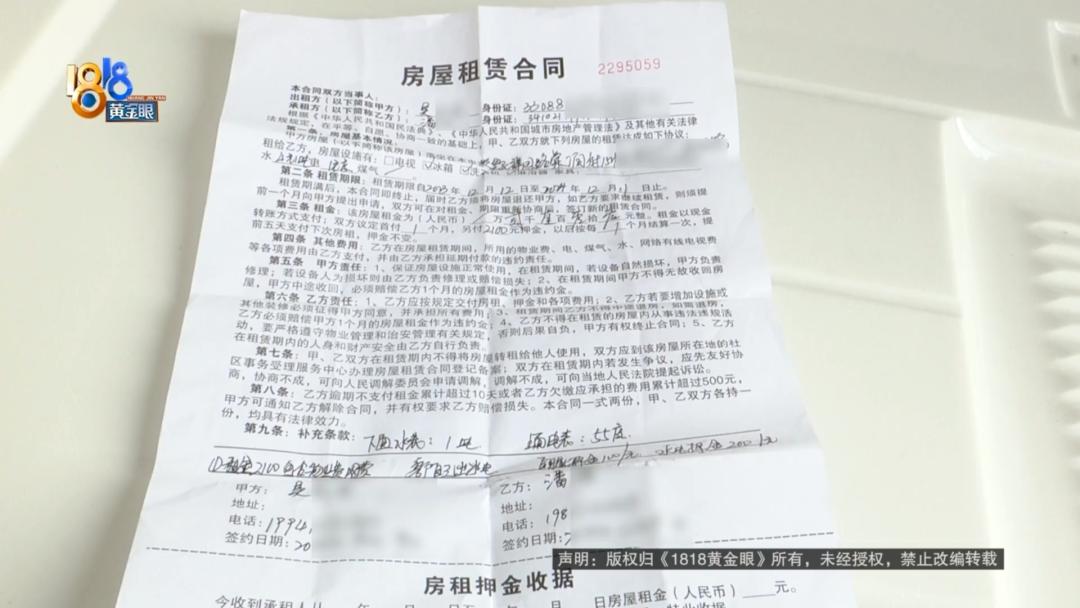 1818
黄金眼
房屋租赁合同 2295059
本合同双方当事人:
出租方(以下简称甲方): 吴 身份证: 33088
承租方(以下简称乙方): 潘 身份证: 341021
根据《中华人民共和国民法典》、《中华人民共和国城市房地产管理法》及其他有关法律
法规规定,在平等、自愿、协商一致的基础上,甲、乙双方就下列房屋的租赁达成如下协议:
第一条、房屋基本情况:
甲方房屋(以下简称该房屋)
租给乙方,房屋设施有:□电视 ☑冰箱
水 电 煤气
第二条 租赁期限:租赁期限自2023年12月12日至2024年12月11日止。
租赁期满后,本合同即终止,届时乙方须将房屋退还甲方,如乙方要求继续租赁,则须提
前一个月向甲方提出申请,双方可在对租金、期限重新协商后,签订新的租赁合同。
第三条 租金:该房屋租金为(人民币) 万 仟 壹佰 拾 元整。租金以现金
转账方式支付;双方议定首付1个月,另付2100元押金,以后按每1个月结算一次,提
前五天支付下次房租,押金不变。
第四条 其他费用:乙方在房屋租赁期间,所用的物业费、电、煤气、水、网络有线电视费
等各项费用由乙方支付,并由乙方承担延期付款的违约责任。
第五条 甲方责任:1、保证房屋设施正常使用,在租赁期间,若设备自然损坏,甲方负责
修理;若设备人为损坏则由乙方负责修理或赔偿损失;2、在租赁期间甲方不得无故收回房
屋,甲方中途收回,必须赔偿乙方1个月的房屋租金作为违约金。
第六条 乙方责任:1、乙方应按规定交付房租、押金和各项费用;2、乙方若要增加设施或
其他装修必须征得甲方同意,并承担所有费用;3、租赁期间乙方不得中途退房,如需退房,
乙方必须赔偿甲方1个月的房屋租金作为违约金;4、乙方不得在租赁的房屋内从事违法违规活
动,要严格遵守物业管理和治安管理有关规定,否则后果自负,甲方有权终止合同;5、乙方
在租赁期内的人身和财产安全由乙方自行负责。
第七条:甲、乙双方在租赁期内不得将房屋转租给他人使用,双方应到该房屋所在地的社
区事务受理服务中心办理房屋租赁合同登记备案;双方在租赁期内若发生争议,应先友好协
商,协商不成,可向人民调解委员会申请调解,调解不成,可向当地人民法院提起诉讼。
第八条:乙方逾期不支付租金累计超过10天或者乙方欠缴应承担的费用累计超过500元,
甲方可通知乙方解除合同,并有权要求乙方赔偿损失。本合同一式两份,甲、乙双方各持一
份,均具有法律效力。
第九条:补充条款: 水表:1吨 电表:55度
①租金2100包含物业费 押金100/元 水电押金200/元
甲方: 吴 乙方: 潘
地址: 地址:
电话: 19941 电话: 198
签约日期: 20 签约日期:
声明:版权归《1818黄金眼》所有,未经授权,禁止改编转载
房租押金收据
今收到承租人从 年 月 日至 年 月 日房屋租金(人民币) 元。